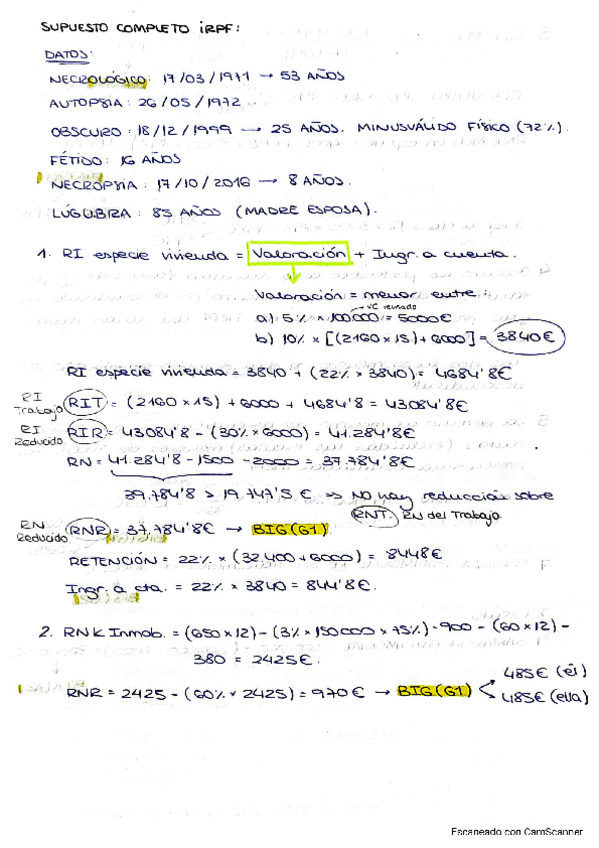 SUPUESTO COMPLETO IRPF:
DATOS:
NECROLÓGICO: 17/03/1971 → 53 AÑOS
AUTOPSIA: 26/05/1972
OBSCURO: 18/12/1999 → 25 AÑOS. MINUSVÁLIDO FÍSICO (72%).
FÉTIDO: 16 AÑOS
NECROPSIA: 17/10/2016 → 8 AÑOS.
LÚGUBRA: 85 AÑOS (MADRE ESPOSA).
1. RI especie vivienda = Valoración + Ingr. a cuenta.
Valoración = menor entre:
→ VC revisado
a) 5% × 100000 = 5000€
b) 10% × [(2160 × 15) + 6000] = 3840€
RI especie vivienda = 3840 + (22% × 3840) = 4684'8€
RI Trabajo RIT = (2160 × 15) + 6000 + 4684'8 = 43084'8€
RI Reducido RIR = 43084'8 - (30% × 6000) = 41.284'8€
RN = 41.284'8 - 1500 - 2000 = 37.784'8€
39.784'8 > 19.747'5 € ⇒ NO hay reducción sobre
RNT → RN del Trabajo
RN Reducido RNR = 37.784'8€ → BIG(G1)
RETENCIÓN = 22% × (32400 + 6000) = 8448€
Ingr. a cta. = 22% × 3840 = 844'8€.
2. RNK Inmob. = (650 × 12) - (3% × 150000 × 75%) - 900 - (60 × 12) -
380 = 2425€.
RNR = 2425 - (60% × 2425) = 970€ → BIG(G1)
485€ (él)
485€ (ella)
Escaneado con CamScanner